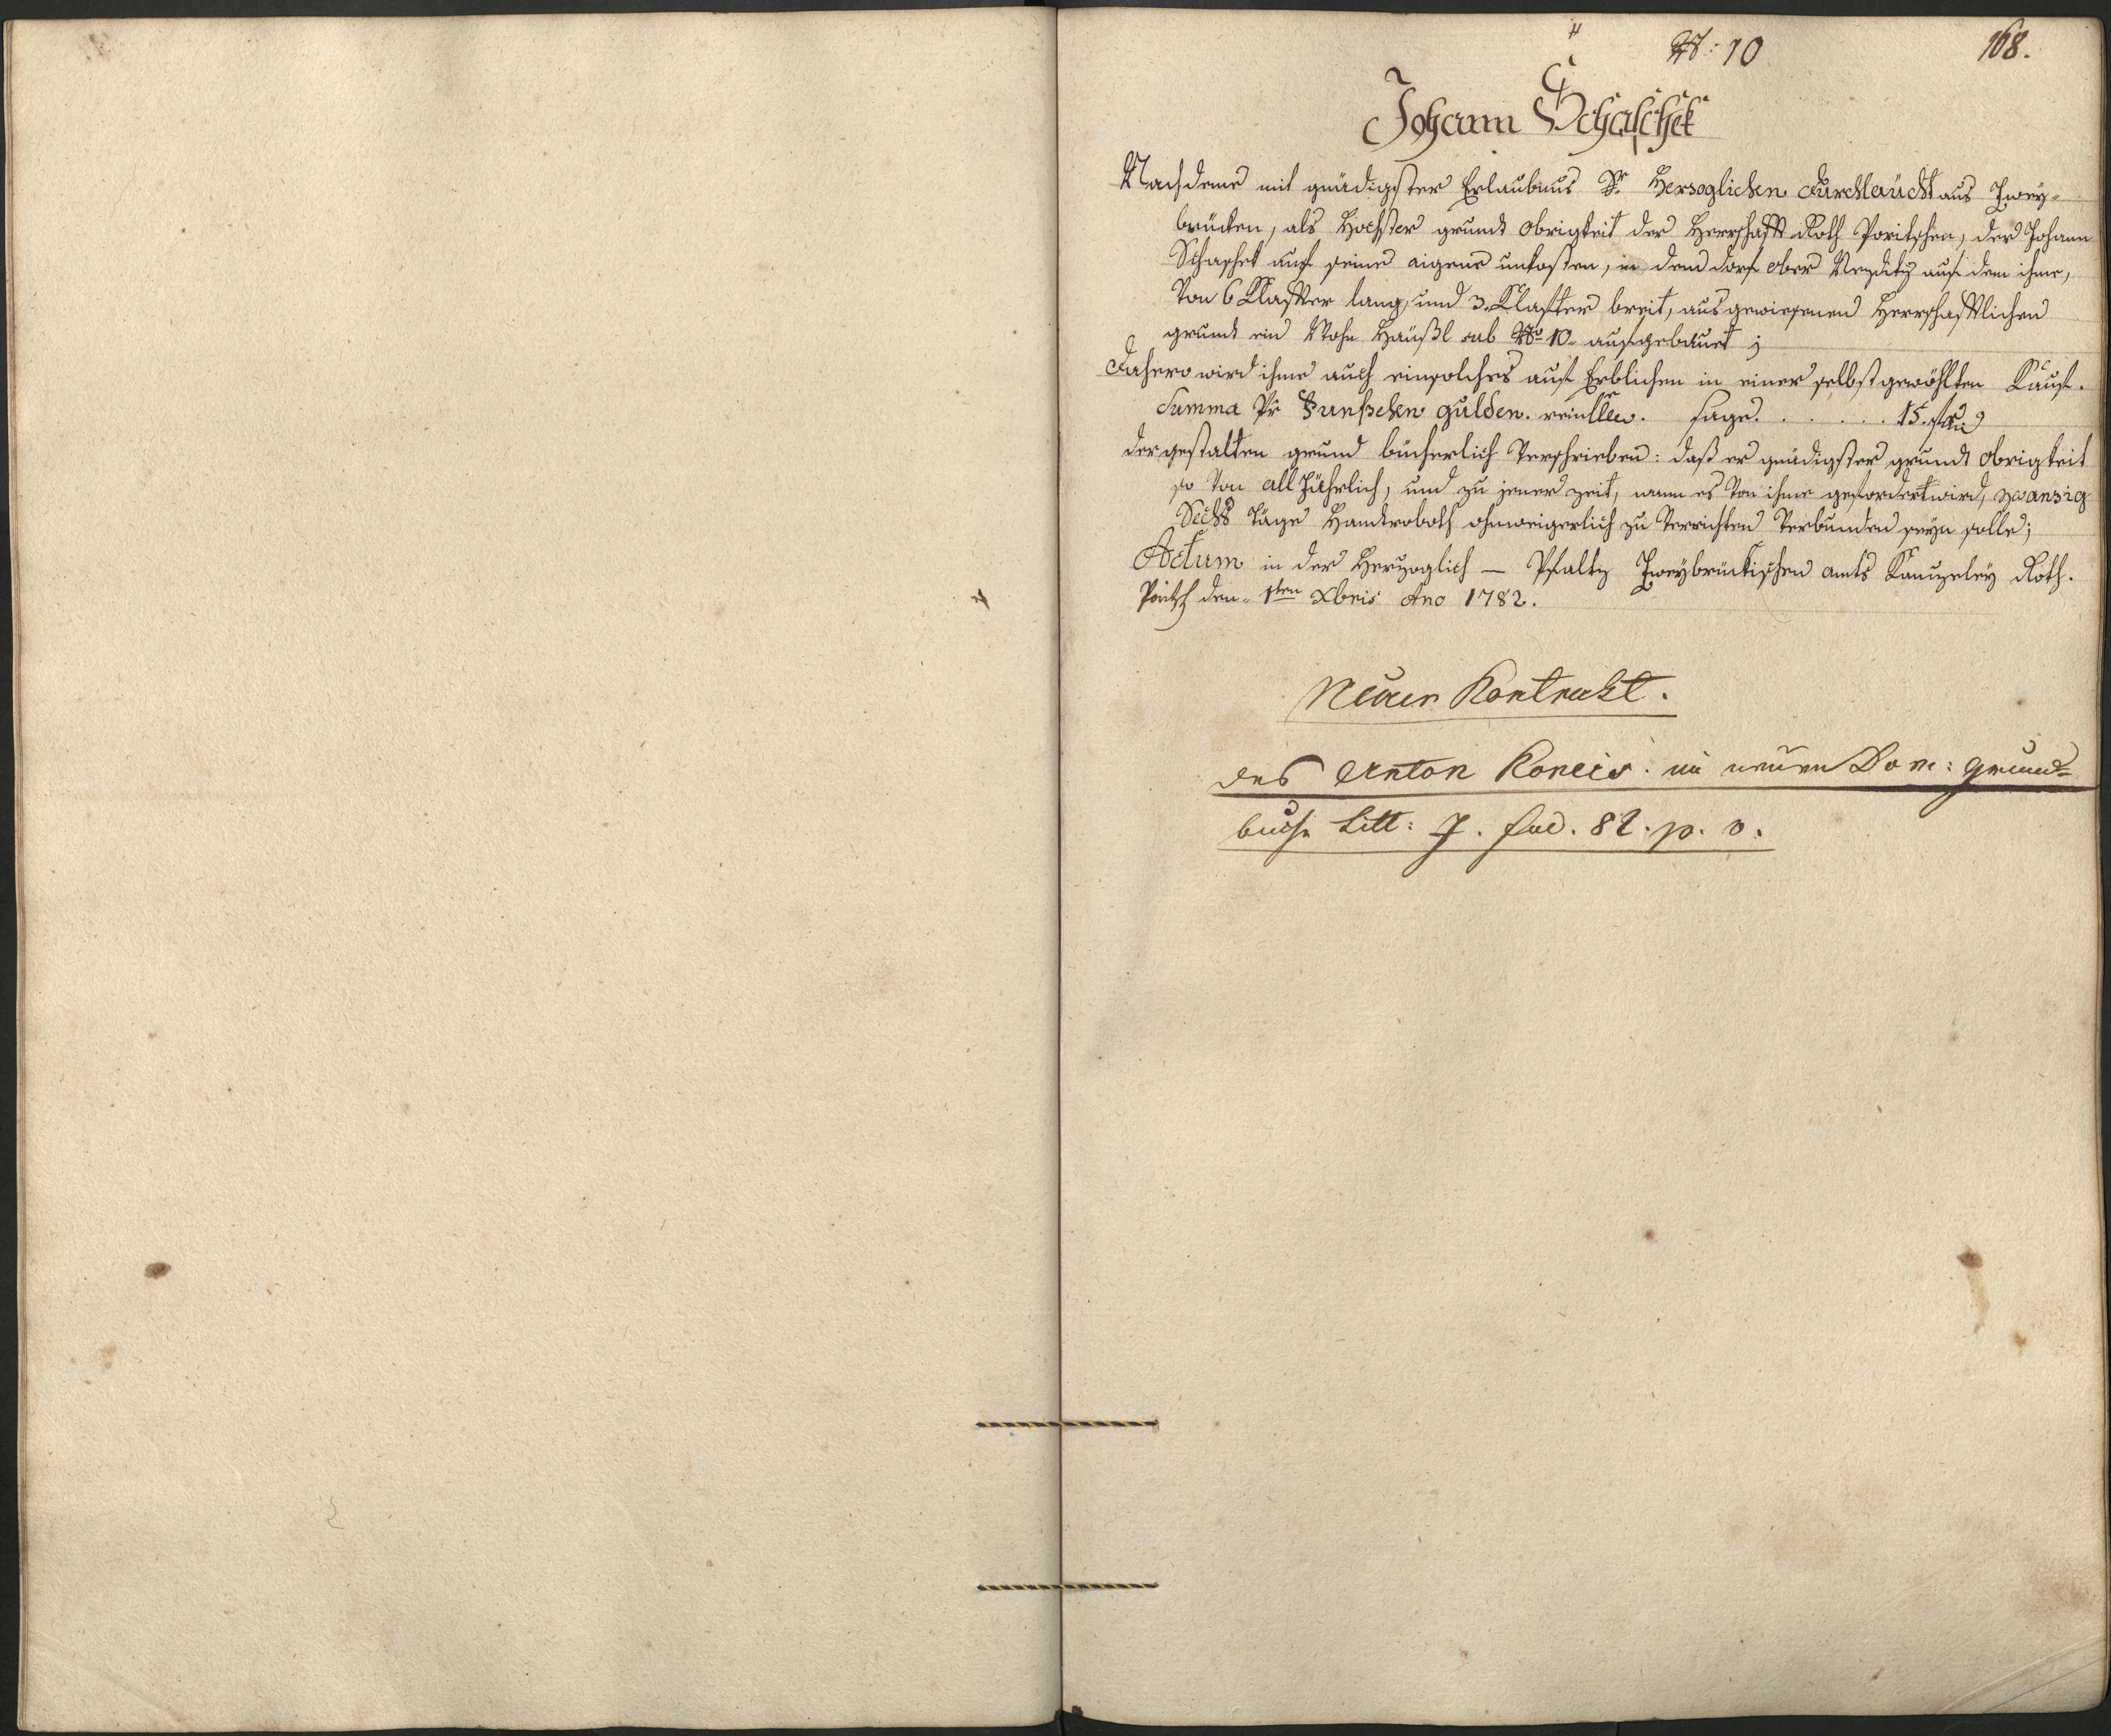 N: 10
168.
Johann Schaschek
Nachdeme mit gnädigster Erlaubnus Sr. Herzoglichen Durchlaücht aus Zwey-
brücken, als Höchster grundt Obrigkeit der Herrschafft Roth Poritschen, der Johann
Schaschek auf seine aigene unkosten, in dem dorf ober auf dem ihme,
Von 6 Klaffter lang, und 3. Klaffter breit, ausgewiesenen Herrschafftlichen
grundt ein Wohn Häußl sub No 10. aufgebauet;
Dahero wird ihme auch ein solches auf Erblichen in einer selbst gewöhlten Kauf-
Summa Pr Funfzehen gulden. sage . . . . . . 15. f
dergestalten grund bücherlich Verschrieben: daß er gnädigster grundt obrigkeit
so Von all Jährlich, und zu jener zeit, wann es Von ihme gefordert wird, zwanzig
Sechs Täge Handtroboth ohnweigerlich zu Verrichten Verbunden seyn solle;
Actum in der Herzoglich – Pfaltz Zweybrückischen amts Kanzeley Roth-
Poritsch den 1ten Xbris Ano 1782.
Neuer Kontrakt.
des Anton im neuen Dom: Grund=
buche Litt: J. fol. 82. p. v.